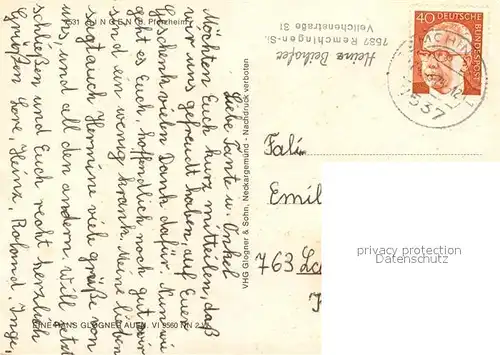 7531 SINGEN b. Pforzheim
Liebe Tante u. Onkel
Möchten Euch kurz mitteilen, daß
wir uns gefreudt haben, auf Euer
Geschenk vielen Dank dafür. Nun wie
geht es Euch, hoffendlich noch gut, wir
sind ein wenig krank. Meine lieben
sagt auch Hermine viele grüße von
uns, und all den andern. Will jetzt
schließen und Euch recht herzlich
Grüßen Lore, Heinz, Roland, Inge,
EINE HANS GLOGNER AUFN. VI 9560 NN 2
HHG Glogner & Sohn, Neckargemünd - Nachdruck verboten
Heinz Beihofer
7537 Remchingen-S.
Veilchenstraße 31
40 DEUTSCHE
BUNDESPOST
7537
Fam
Emil
763 La
privacy protection